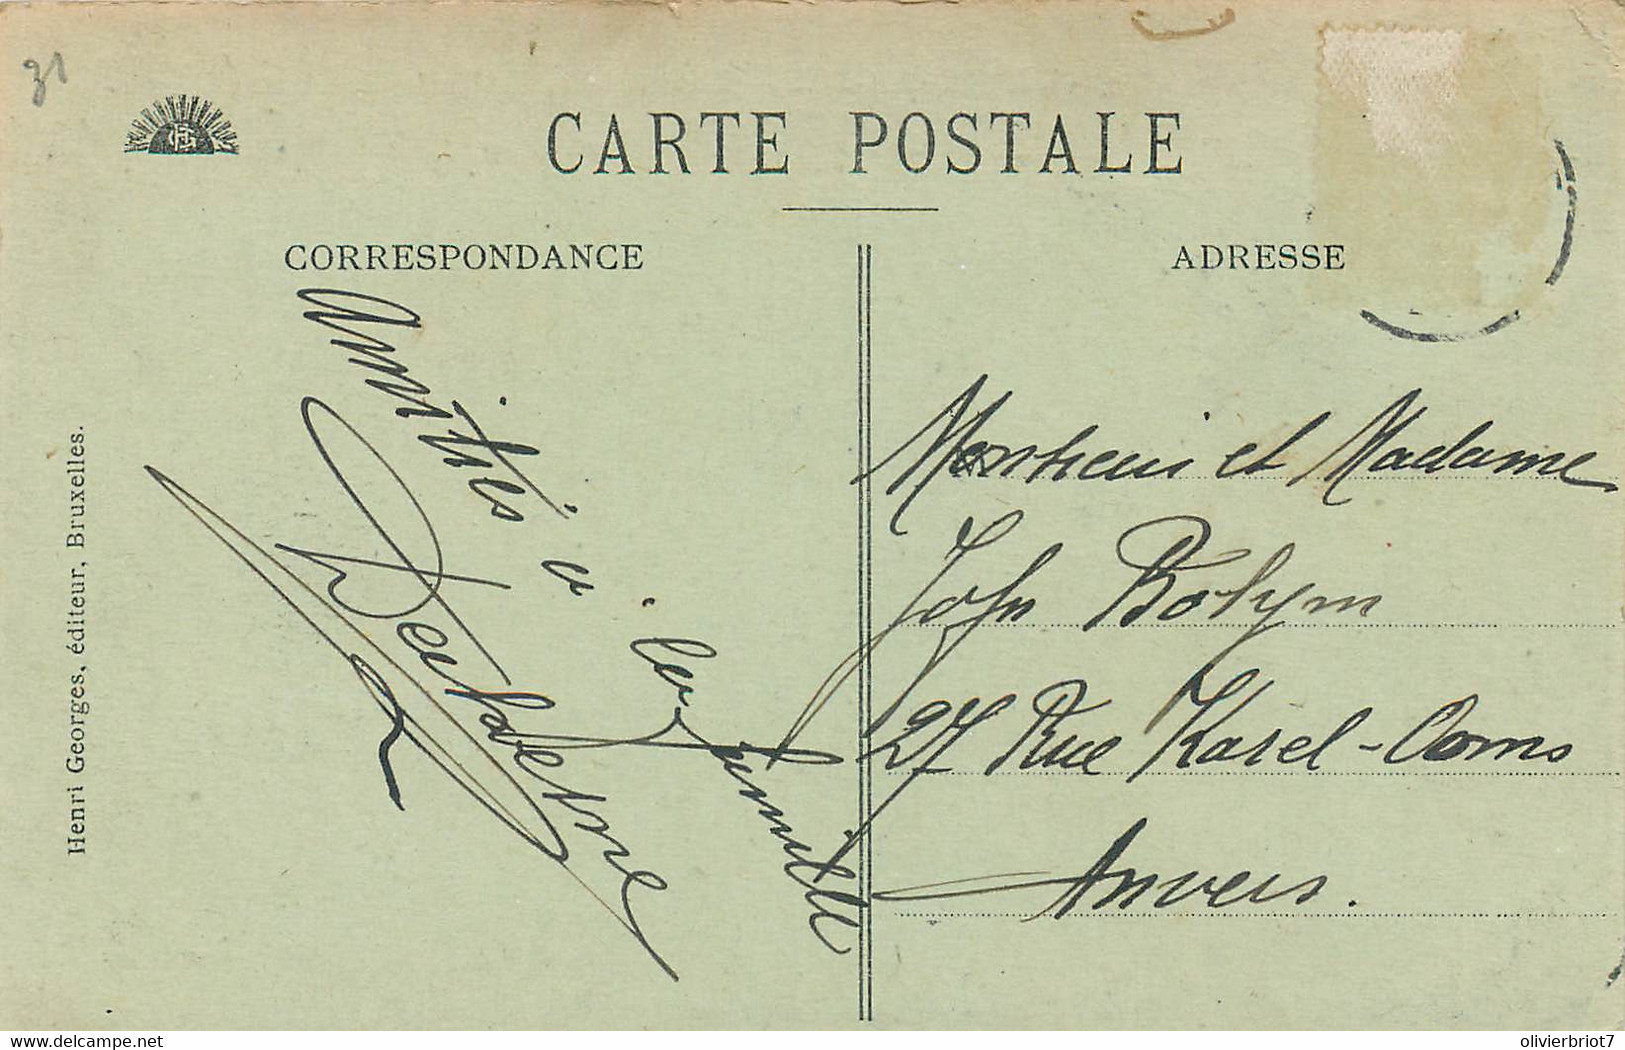 31
CARTE POSTALE
CORRESPONDANCE
ADRESSE
Amitiés à la famille
Monsieur et Madame
John Bolym
27 Rue Karel-Ooms
Anvers.
Henri Georges, éditeur, Bruxelles.
delcampe.net
olivierbriot7